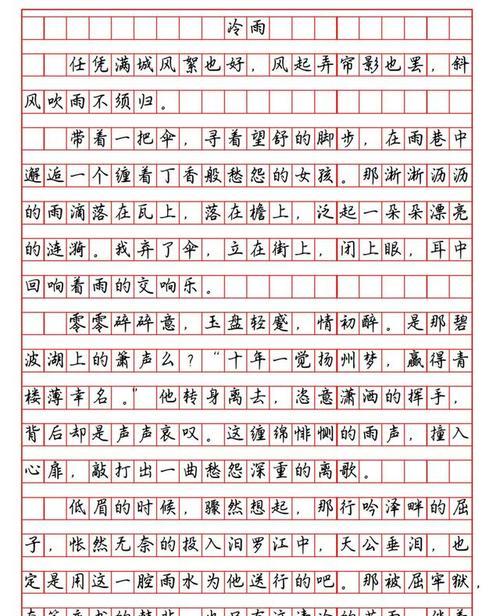 冷雨
任凭满城风絮也好，风起弄帘影也罢，斜
风吹雨不须归。
带着一把伞，寻着望舒的脚步，在雨巷中
邂逅一个缠着丁香般愁怨的女孩。那淅淅沥沥
的雨滴落在瓦上，落在檐上，泛起一朵朵漂亮
的涟漪。我弃了伞，立在街上，闭上眼，耳中
回响着雨的交响乐。
零零碎碎意，玉盘轻蹙，情初醉。是那碧
波湖上的箫声么？“十年一觉扬州梦，赢得青
楼薄幸名。”他转身离去，恣意潇洒的挥手，
背后却是声声哀叹。这缠绵悱恻的雨声，撞入
心扉，敲打出一曲愁怨深重的离歌。
低眉的时候，骤然想起，那行吟泽畔的屈
子，怅然无奈的投入汨罗江中，天公垂泪，也
定是用这一腔雨水为他送行的吧。那被屈牢狱，